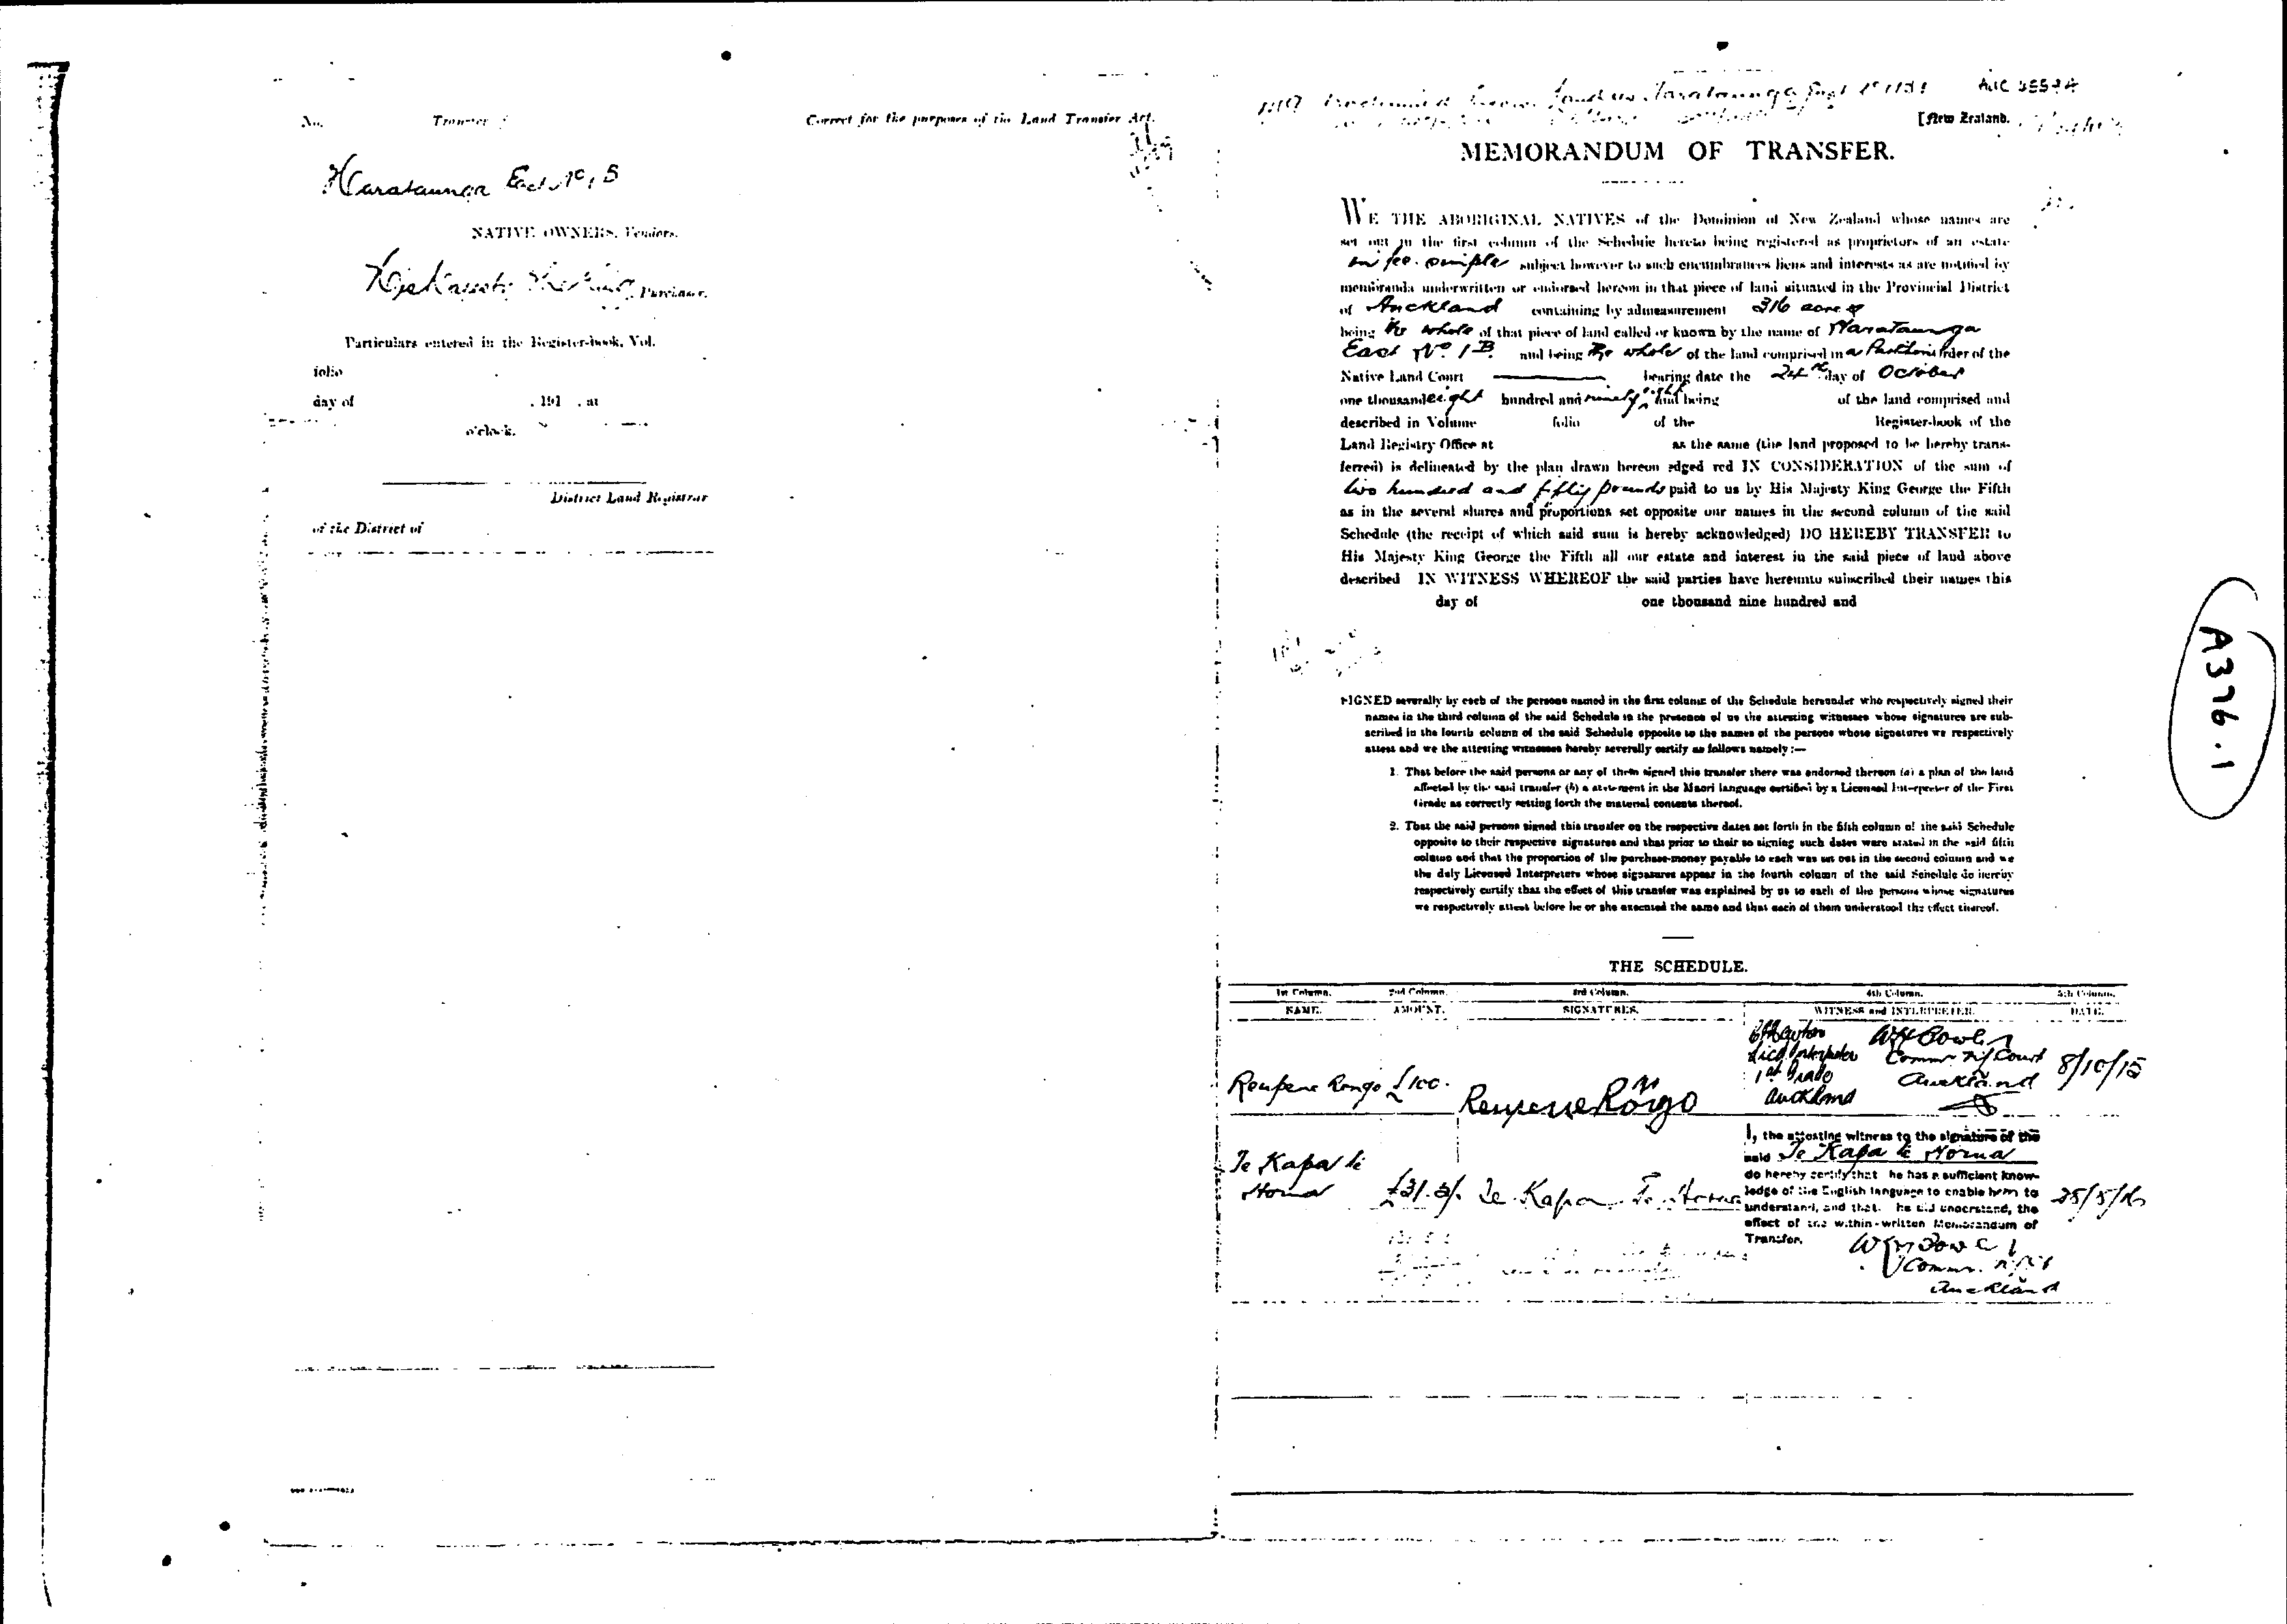 No. Transfer
Correct for the purposes of the Land Transfer Act.
Harataunga East No 1 B
NATIVE OWNERS, Vendors.
His Majesty The King, Purchaser.
Particulars entered in the Register-book, Vol.
folio
day of , 191 , at
o'clock.
District Land Registrar
of the District of
AUC
[New Zealand.
MEMORANDUM OF TRANSFER.
WE THE ABORIGINAL NATIVES of the Dominion of New Zealand whose names are
set out in the first column of the Schedule hereto being registered as proprietors of an estate
in fee simple subject however to such encumbrances liens and interests as are notified by
memoranda underwritten or endorsed hereon in that piece of land situated in the Provincial District
of Auckland containing by admeasurement 316 acres
being the whole of that piece of land called or known by the name of Harataunga
East No. 1B. and being the whole of the land comprised in a Partition Order of the
Native Land Court bearing date the 24th day of October
one thousand eight hundred and ninety eight and being of the land comprised and
described in Volume folio of the Register-book of the
Land Registry Office at as the same (the land proposed to be hereby trans-
ferred) is delineated by the plan drawn hereon edged red IN CONSIDERATION of the sum of
two hundred and fifty pounds paid to us by His Majesty King George the Fifth
as in the several shares and proportions set opposite our names in the second column of the said
Schedule (the receipt of which said sum is hereby acknowledged) DO HEREBY TRANSFER to
His Majesty King George the Fifth all our estate and interest in the said piece of land above
described IN WITNESS WHEREOF the said parties have hereunto subscribed their names this
day of one thousand nine hundred and
A376.1
SIGNED severally by each of the persons named in the first column of the Schedule hereunder who respectively signed their
names in the third column of the said Schedule in the presence of us the attesting witnesses whose signatures are sub-
scribed in the fourth column of the said Schedule opposite to the names of the persons whose signatures we respectively
attest and we the attesting witnesses hereby severally certify as follows namely :—
1. That before the said persons or any of them signed this transfer there was endorsed thereon (a) a plan of the land
affected by the said transfer (b) a statement in the Maori language certified by a Licensed Interpreter of the First
Grade as correctly setting forth the material contents thereof.
2. That the said persons signed this transfer on the respective dates set forth in the fifth column of the said Schedule
opposite to their respective signatures and that prior to their so signing such dates were stated in the said fifth
column and that the proportion of the purchase-money payable to each was set out in the second column and we
the duly Licensed Interpreters whose signatures appear in the fourth column of the said Schedule do hereby
respectively certify that the effect of this transfer was explained by us to each of the persons whose signatures
we respectively attest before he or she executed the same and that each of them understood the effect thereof.
THE SCHEDULE.
1st Column. 2nd Column. 3rd Column. 4th Column. 5th Column.
NAME. AMOUNT. SIGNATURES. WITNESS and INTERPRETER. DATE.
Licd Interpreter Commr N/ Court
1st Grade Auckland
Auckland
Reupene Rongo £100. Reupene Rongo 8/10/15
I, the attesting witness to the signature of the
said Te Kapa te Horua
do hereby certify that he has a sufficient know-
ledge of the English language to enable him to
understand, and that he did understand, the
effect of the within-written Memorandum of
Transfer.
Te Kapa te
Horua £31.5/. Te Kapa Te Horua 25/5/16
Auckland